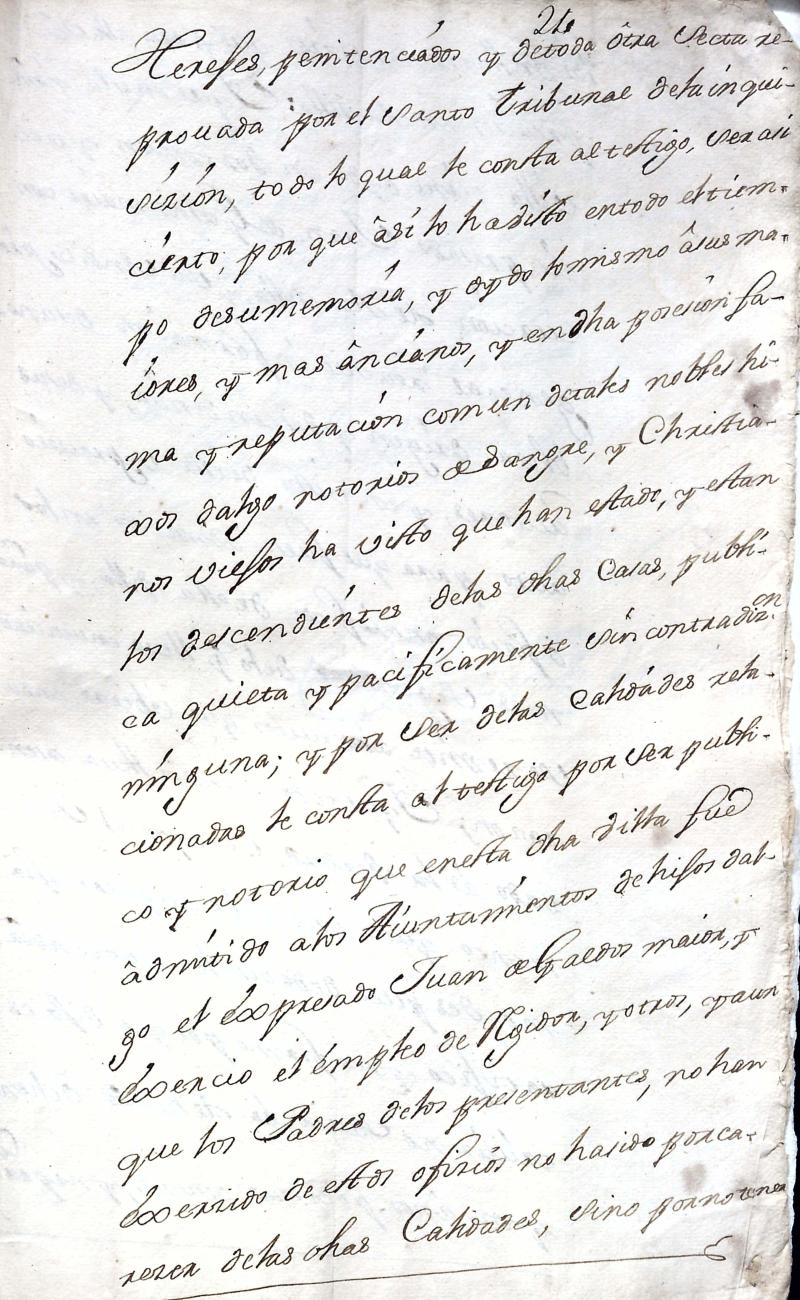 21.
Hereses, penitenciados y detoda ôtra Secta re-
prouada por el Santo Tribunal delainqui-
sizión, todo lo qual le consta altestigo, ser asi
cierto, por que âsi lo ha visto entodo eltiem-
po desumemoria, y oydo lomismo âsus ma-
iôres, y mas âncianos, y en dha posesion fa-
ma y reputación comun detales nobles hi-
xos dalgo notorios de Sangre, y Christia-
nos viejos ha visto que han estado, y estan
los descendientes delas dhas Casas, publi-
ca quieta y pacificamente sin contradizion
ninguna; y por ser delas Calidades rela-
cionadas le consta al testigo por ser publi-
co y notorio que enesta dha villa fue
âdmitido alos Aiuntamientos de hijos dal-
go el êxpresado Juan de Galdos maior, y
êxercio el êmpleo de Rgidor, y otros, y aun
que los Padres delos presentantes, no han
êxerzido de estos ofizios no hasido por ca-
rezer delas dhas Calidades, sino por no tener